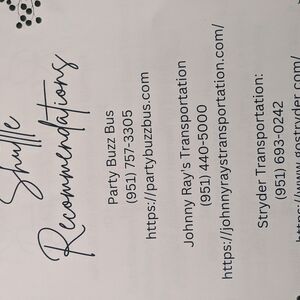 Shuffle
Recommendations
Party Buzz Bus
(951) 757-3305
https://partybuzzbus.com
Johnny Ray's Transportation
(951) 440-5000
https://johnnyraystransportation.com/
Stryder Transportation:
(951) 693-0242